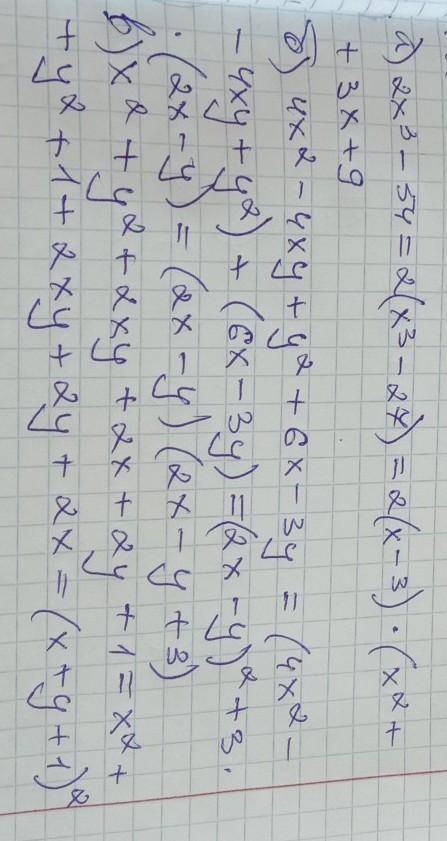 а) 2x³ - 54 = 2(x³ - 27) = 2(x - 3) · (x² +
+ 3x + 9
б) 4x² - 4xy + y² + 6x - 3y = (4x² -
- 4xy + y²) + (6x - 3y) = (2x - y)² + 3 ·
· (2x - y) = (2x - y) (2x - y + 3)
в) x² + y² + 2xy + 2x + 2y + 1 = x² +
+ y² + 1 + 2xy + 2y + 2x = (x + y + 1)²